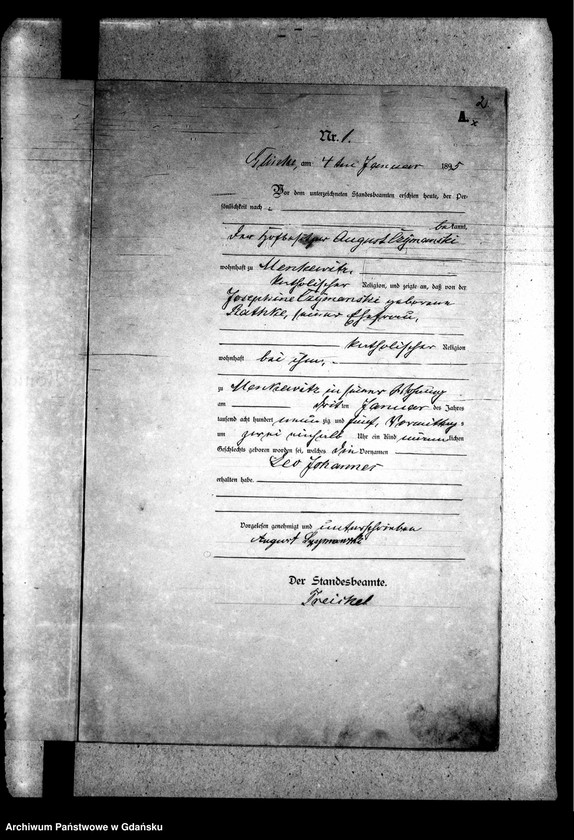 2
A.
Nr. 1.
am 4ten Januar 1895
Vor dem unterzeichneten Standesbeamten erschien heute, der Per-
sönlichkeit nach
bekannt,
der Hofbesitzer August Czymanski
wohnhaft zu Menkewitz,
katholischer Religion, und zeigte an, daß von der
Josephine Czymanski geborene
Rathke, seiner Ehefrau,
katholischer Religion
wohnhaft bei ihm,
zu Menkewitz in seiner Wohnung
am dritten Januar des Jahres
tausend acht hundert neunzig und fünf, Vormittags
um zwei einhalb Uhr ein Kind männlichen
Geschlechts geboren worden sei, welches die Vornamen
Leo Johannes
erhalten habe.
Vorgelesen genehmigt und unterschrieben
August
Der Standesbeamte.
Treichel
Archiwum Państwowe w Gdańsku